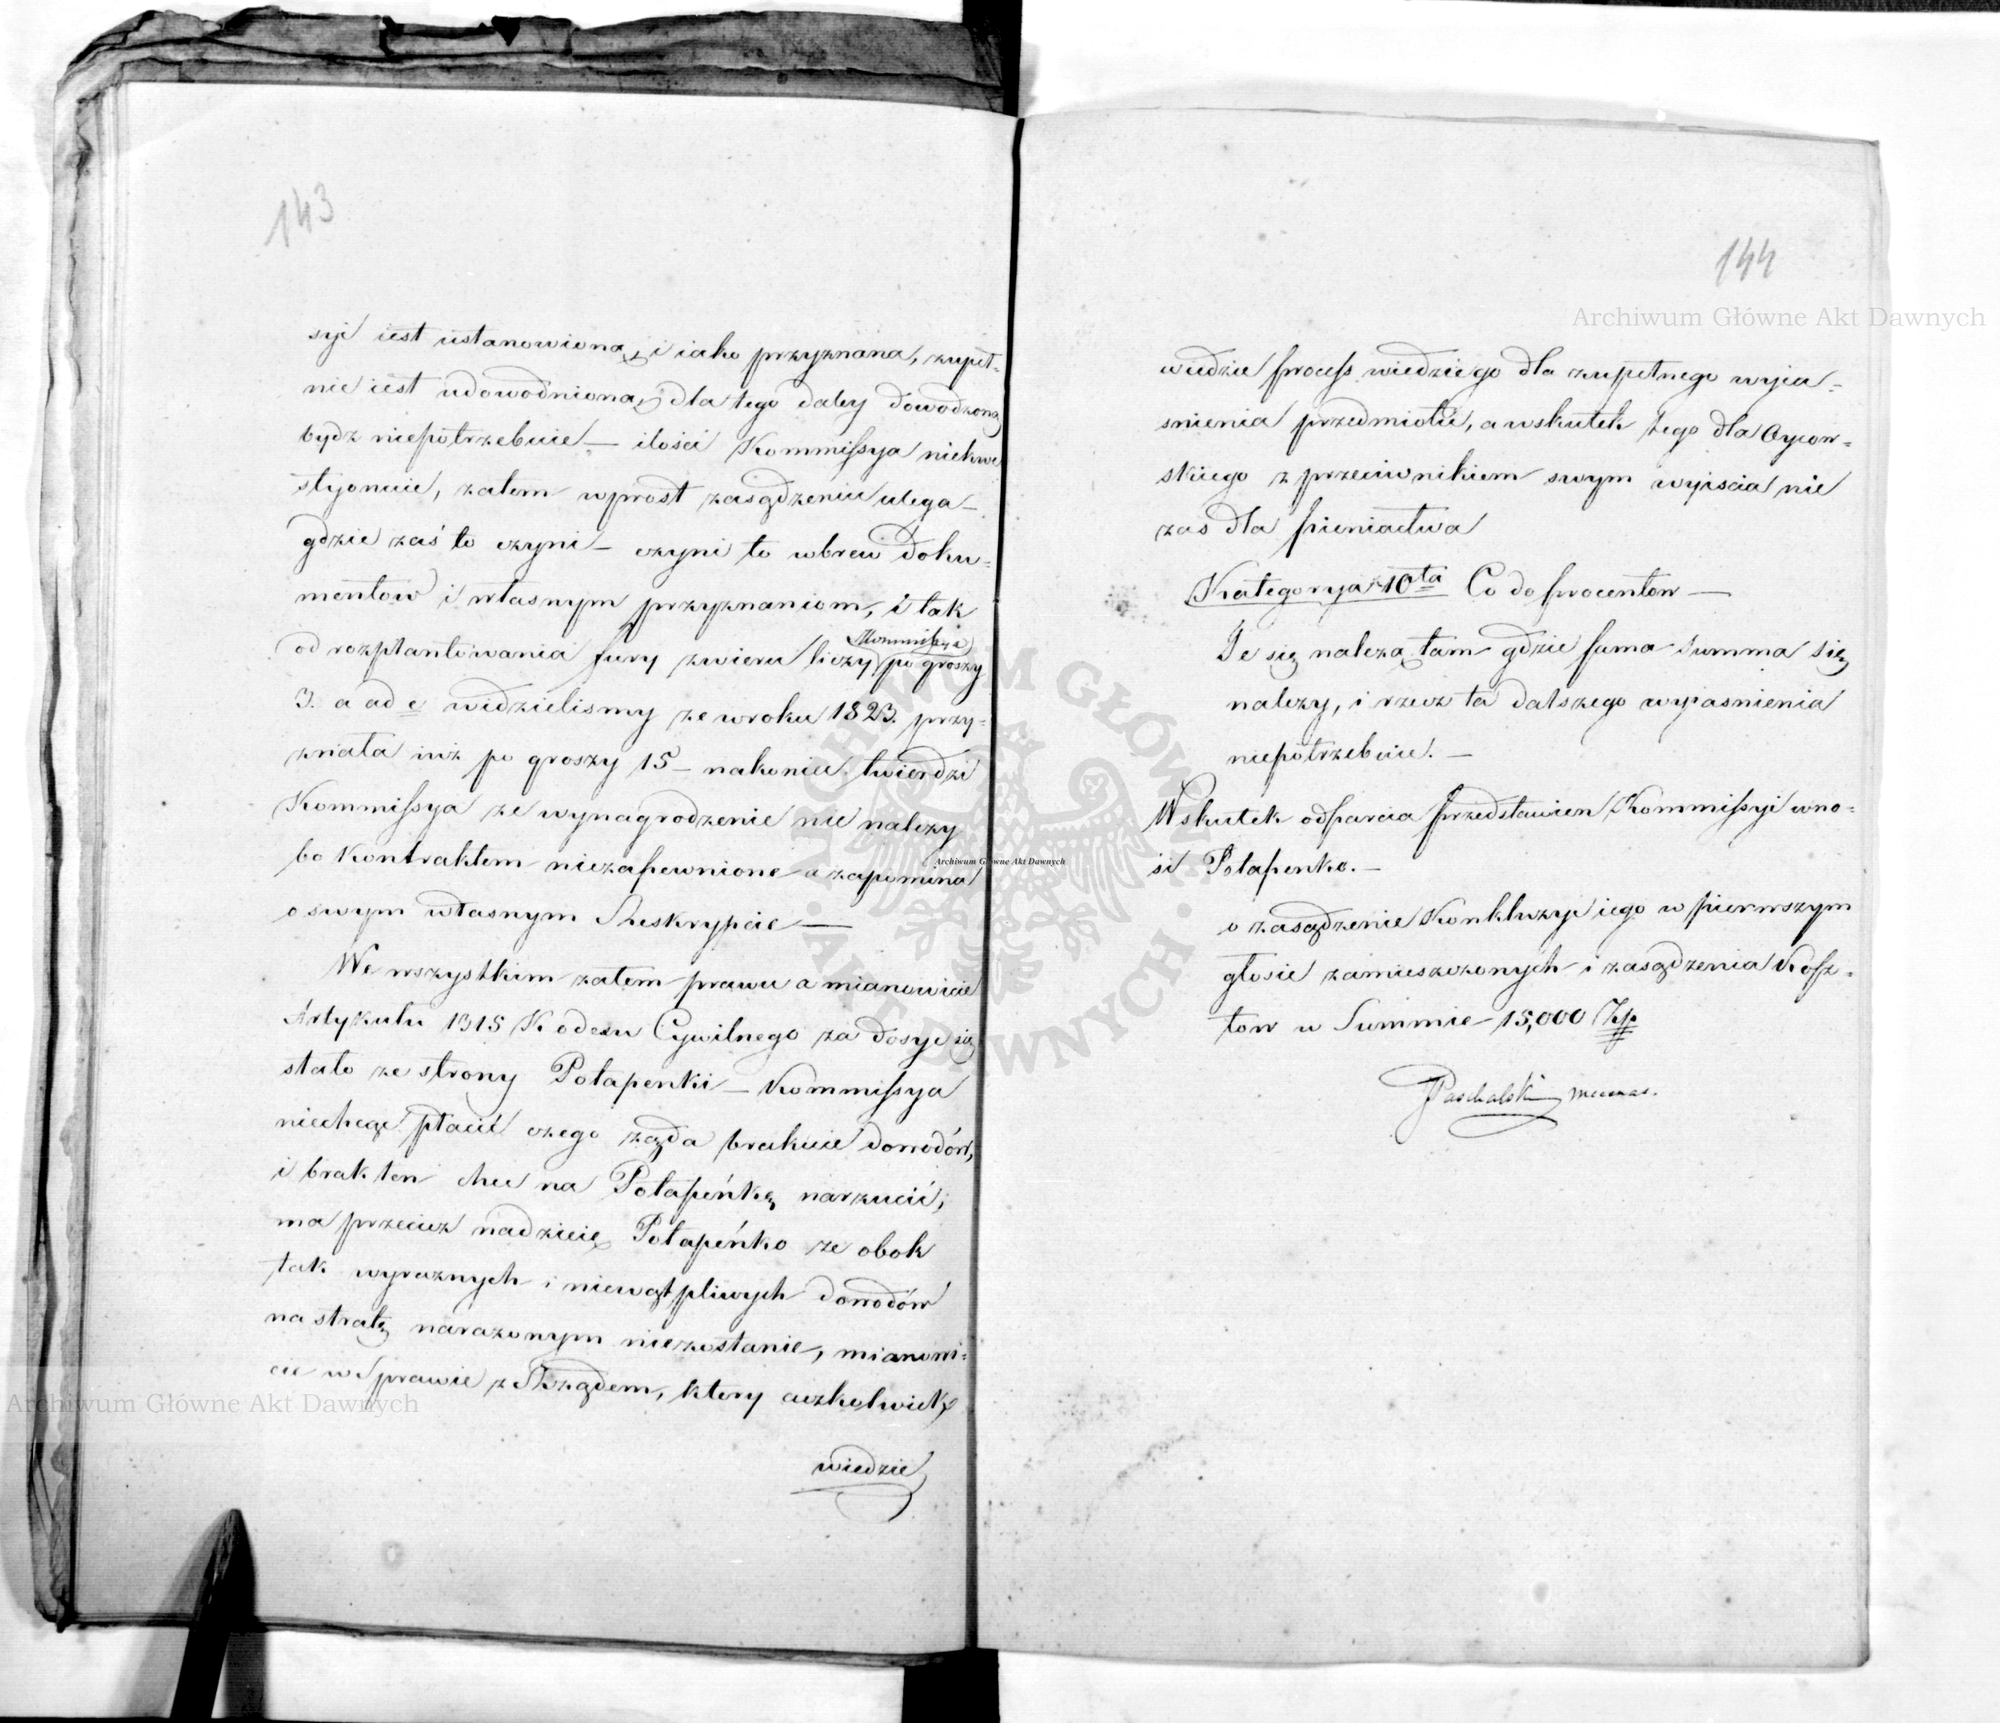 143
syi iest ustanowioną, i iako przyznana, zupeł-
nie iest udowodnioną, dla tego daley dowodzoną
bydz niepotrzebuie — ilości Kommissya niekwe
styonuie, zatem wprost zasądzeniu ulega —
gdzie zaś to czyni — czyni to wbrew doku-
mentów i własnym przyznaniom, i tak
od rozplantowania fury zwieru liczy Kommissya po groszy
3. a ad e widzielismy ze w roku 1823. przy-
znała iuz po groszy 15 — nakoniec twierdzi
Kommissya ze wynagrodzenie nie nalezy
bo Kontraktem niezapewnione a zapomina
o swym własnym Reskrypcie —
We wszystkim zatem prawu a mianowicie
Artykułu 1315 Kodexu Cywilnego za dosyc się
stało ze strony Potapenki — Kommissya
niechcąc płacić czego ząda brakuie dowodów,
i brak ten chce na Potapeńkę narzucić;
ma przeciez nadzieię Potapeńko ze obok
tak wyraznych i niewątpliwych dowodów
na stratę narazonym niezostanie, mianowi-
cie w Sprawie z Rządem, ktory aczkolwiek
wiedzie
144
wiedzie process wiedzie go dla zupełnego wyia-
snienia przedmiotu, a wskutek tego dla Oycow-
skiego z przeciwnikiem swym wyiscia nie
zas dla pieniactwa
Kategorya 10ta Co do procentow —
Te się nalezą tam gdzie sama Summa się
nalezy, i rzecz ta dalszego wyiasnienia
niepotrzebuie. —
W skutek odparcia przedstawien Kommissyi wno-
si Potapenko. —
o zasądzenie Konkluzyi iego w pierwszym
głosie zamieszczonych i zasądzenia Kosz-
tow w Summie 15,000 Zp
JPaschalski mecenas.
Archiwum Główne Akt Dawnych
Archiwum Główne Akt Dawnych
Archiwum Główne Akt Dawnych
ARCHIWUM GŁÓWNE · AKT DAWNYCH ·